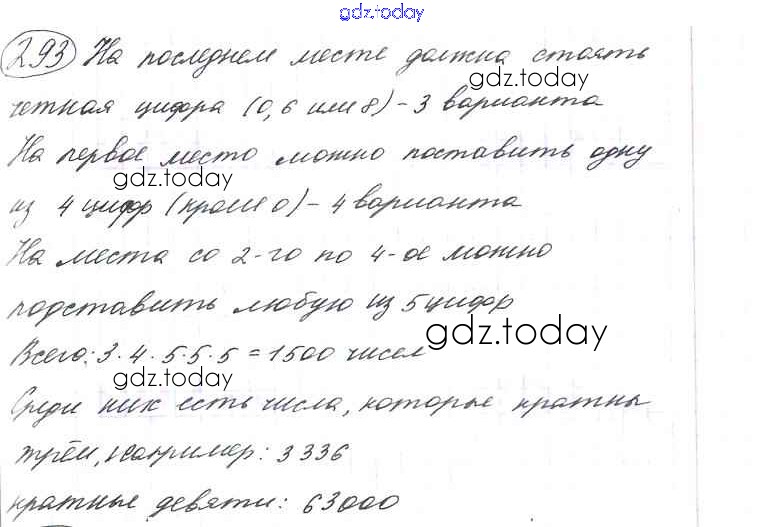 gdz.today
293 На последнем месте должна стоять
gdz.today
четная цифра (0, 6 или 8) – 3 варианта
На первое место можно поставить одну
gdz.today
из 4 цифр (кроме 0) – 4 варианта
На места со 2-го по 4-ое можно
подставить любую из 5 цифр
gdz.today
Всего: 3·4·5·5·5 = 1500 чисел
gdz.today
Среди них есть числа, которые кратны
трём, например: 3336
кратные девяти: 63000